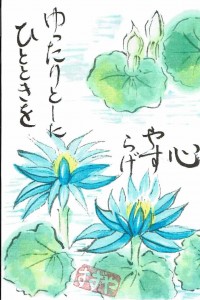 心
やす
らげ
ゆったりとした
ひとときを